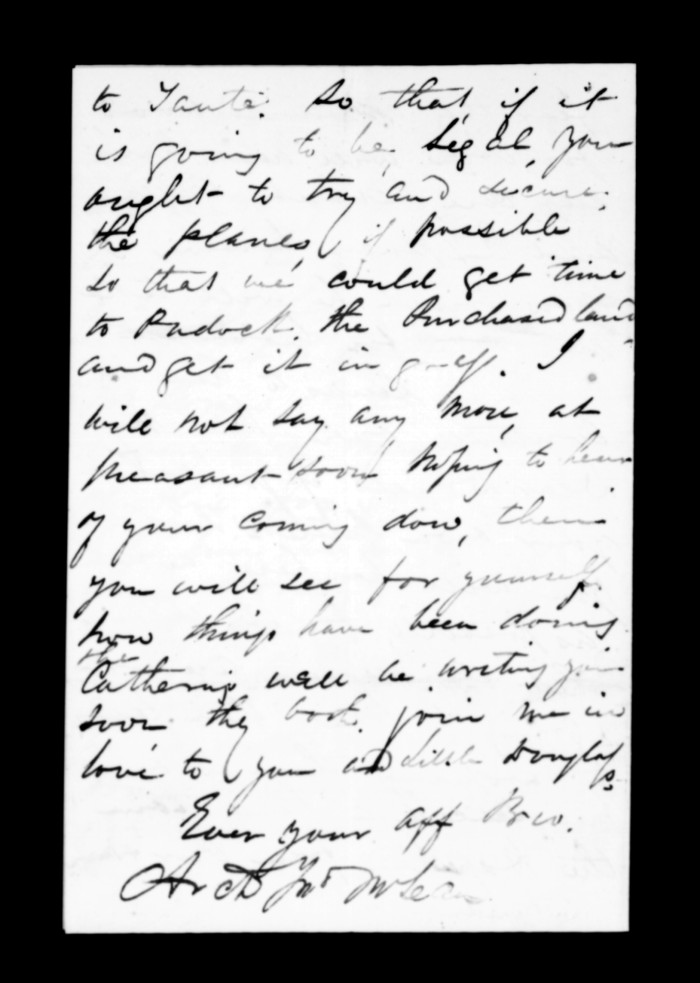 to Tauta. So that if it
is going to be legal, you
aught to try and secure
the planes, if possible
so that we could get time
to Padock. the Purchased land
and get it in grass. I
will not say any more, at
preasant soon hoping to hear
of your coming dow, then
you will see for yourself
how things have been doing.
the
Catherine will be writing you
soon they both join me in
love to you and little Douglass
Ever your aff Bro.
Archd Jno McLean